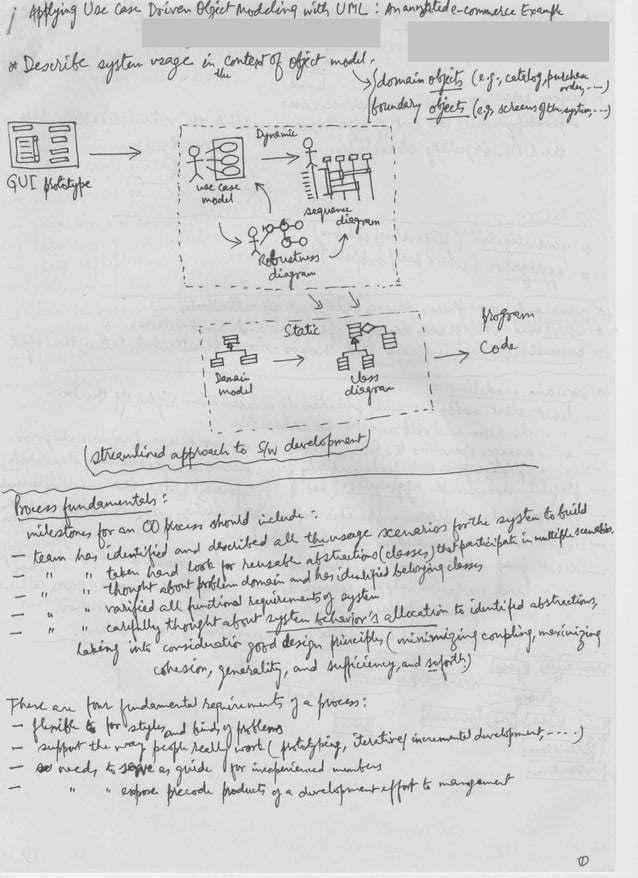 Applying Use Case Driven Object Modeling with UML : An annotated e-commerce Example
* Describe system usage in the context of object model.
domain objects (e.g., catalog, purchase order, ....)
boundary objects (e.g., screens of the system, ...)
GUI prototype
Dynamic
use case model
sequence diagram
Robustness diagram
Static
Domain model
class diagram
program Code
streamlined approach to S/W development
Process fundamentals :
milestones for an OO process should include :
— team has identified and described all the usage scenarios for the system to build
— " " taken hard look for reusable abstractions (classes) that participate in multiple scenarios.
— " " thought about problem domain and has identified belonging classes
— " " varified all functional requirements of system
— " " carefully thought about system behavior's allocation to identified abstractions,
taking into consideration good design principles (minimizing coupling, maximizing
cohesion, generality, and sufficiency, and so forth)
There are four fundamental requirements of a process :
— flexible to for styles and kinds of problems
— support the way people really work (prototyping, iterative/incremental development, ....)
— needs to serve as guide for inexperienced members
— " " expose precode products of a development effort to management
1